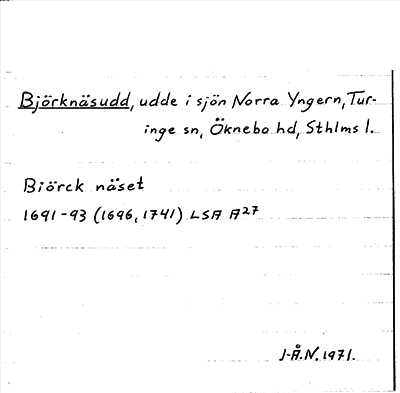 Björknäsudd, udde i sjön Norra Yngern, Tur-
inge sn, Öknebo hd, Sthlms l.
Biörck näset
1691-93 (1696, 1741) LSA A27
J-Å.N. 1971.